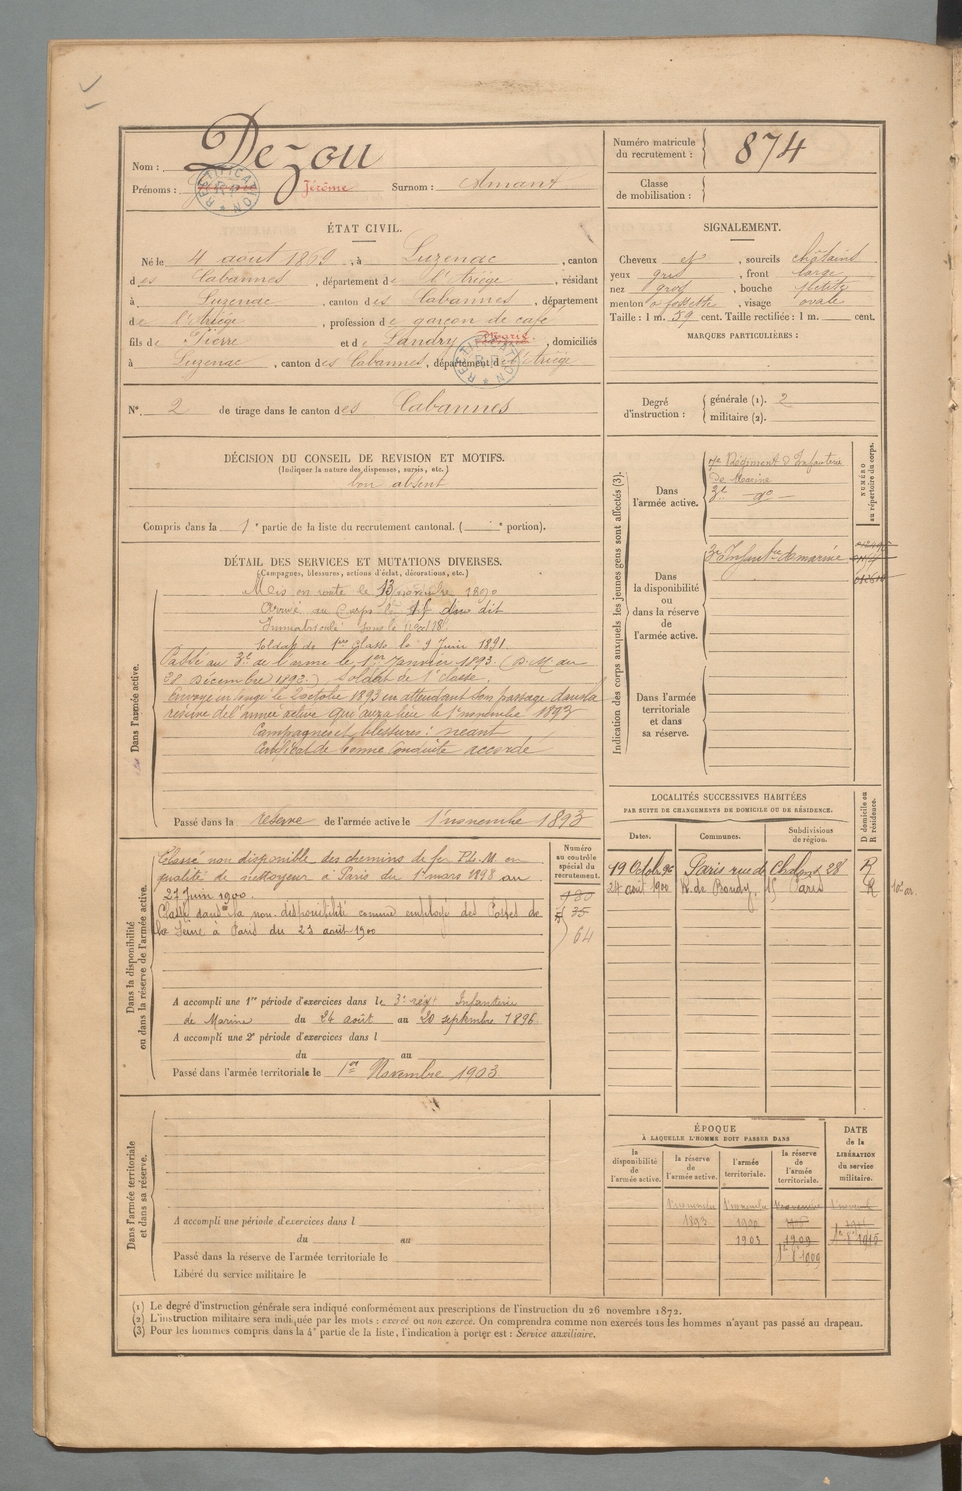 Nom : Dezou
Prénoms : Jérôme Surnom : Amant
RECTIFICATION
Numéro matricule du recrutement : 874
Classe de mobilisation :
ÉTAT CIVIL.
Né le 4 août 1869, à Luzenac, canton
des Cabannes, département de l'Ariège, résidant
à Luzenac, canton des Cabannes, département
de l'Ariège, profession de garçon de café
fils de Pierre et de Landry Marie, domiciliés
à Luzenac, canton des Cabannes, département de l'Ariège
RECTIFICATION
N° 2 de tirage dans le canton des Cabannes
SIGNALEMENT.
Cheveux et, sourcils châtains
yeux gris, front large
nez gros, bouche petite
menton à fossette, visage ovale
Taille : 1 m. 59 cent. Taille rectifiée : 1 m. cent.
MARQUES PARTICULIÈRES :
Degré d'instruction : générale (1). 2
militaire (2).
DÉCISION DU CONSEIL DE REVISION ET MOTIFS.
(Indiquer la nature des dispenses, sursis, etc.)
bon absent
Compris dans la 1e partie de la liste du recrutement cantonal. ( e portion).
DÉTAIL DES SERVICES ET MUTATIONS DIVERSES.
(Campagnes, blessures, actions d'éclat, décorations, etc.)
Dans l'armée active.
Mis en route le 13 novembre 1890
Arrivé au Corps le dit
Immatriculé sous le n°
Soldat de 1ère classe le 9 Juin 1891
Passé au 3e de l'arme le 1er Janvier 1893. (D.M. du
28 Décembre 1892.) Soldat de 1e classe.
Envoyé en congé le 2 octobre 1893 en attendant son passage dans la
réserve de l'armée active qui aura lieu le 1er novembre 1893
Campagnes et blessures : néant
Certificat de bonne conduite accordé
Passé dans la réserve de l'armée active le 1er novembre 1893
Indication des corps auxquels les jeunes gens sont affectés (3).
NUMÉRO au répertoire du corps.
Dans l'armée active.
Régiment d'Infanterie
de Marine
3e do
Dans la disponibilité ou dans la réserve de l'armée active.
3e Infanterie de marine
Dans l'armée territoriale et dans sa réserve.
LOCALITÉS SUCCESSIVES HABITÉES
PAR SUITE DE CHANGEMENTS DE DOMICILE OU DE RÉSIDENCE.
D domicile ou R résidence.
Dates. Communes. Subdivisions de région.
19 Octob 96 Paris rue de Chalons 28 R
24 août 1900 R. de Bondy, 15 Paris R
Dans la disponibilité ou dans la réserve de l'armée active.
Numéro au contrôle spécial du recrutement.
Classé non disponible des chemins de fer P.L.M. en
qualité de nettoyeur à Paris du 1er mars 1898 au
27 Juin 1900.
Classé dans la non disponibilité comme employé des Postes de
la Seine à Paris du 23 août 1900
180
35
64
A accompli une 1re période d'exercices dans le 3e rég. Infanterie
de Marine du 24 août au 20 septembre 1896
A accompli une 2e période d'exercices dans l
du au
Passé dans l'armée territoriale le 1er Novembre 1903
Dans l'armée territoriale et dans sa réserve.
A accompli une période d'exercices dans l
du au
Passé dans la réserve de l'armée territoriale le
Libéré du service militaire le
ÉPOQUE
À LAQUELLE L'HOMME DOIT PASSER DANS
DATE de la LIBÉRATION du service militaire.
la disponibilité de l'armée active.
la réserve de l'armée active.
l'armée territoriale.
la réserve de l'armée territoriale.
1 novembre 1893
1 novembre 1900
1903
1909
(1) Le degré d'instruction générale sera indiqué conformément aux prescriptions de l'instruction du 26 novembre 1872.
(2) L'instruction militaire sera indiquée par les mots : exercé ou non exercé. On comprendra comme non exercés tous les hommes n'ayant pas passé au drapeau.
(3) Pour les hommes compris dans la 4e partie de la liste, l'indication à porter est : Service auxiliaire.